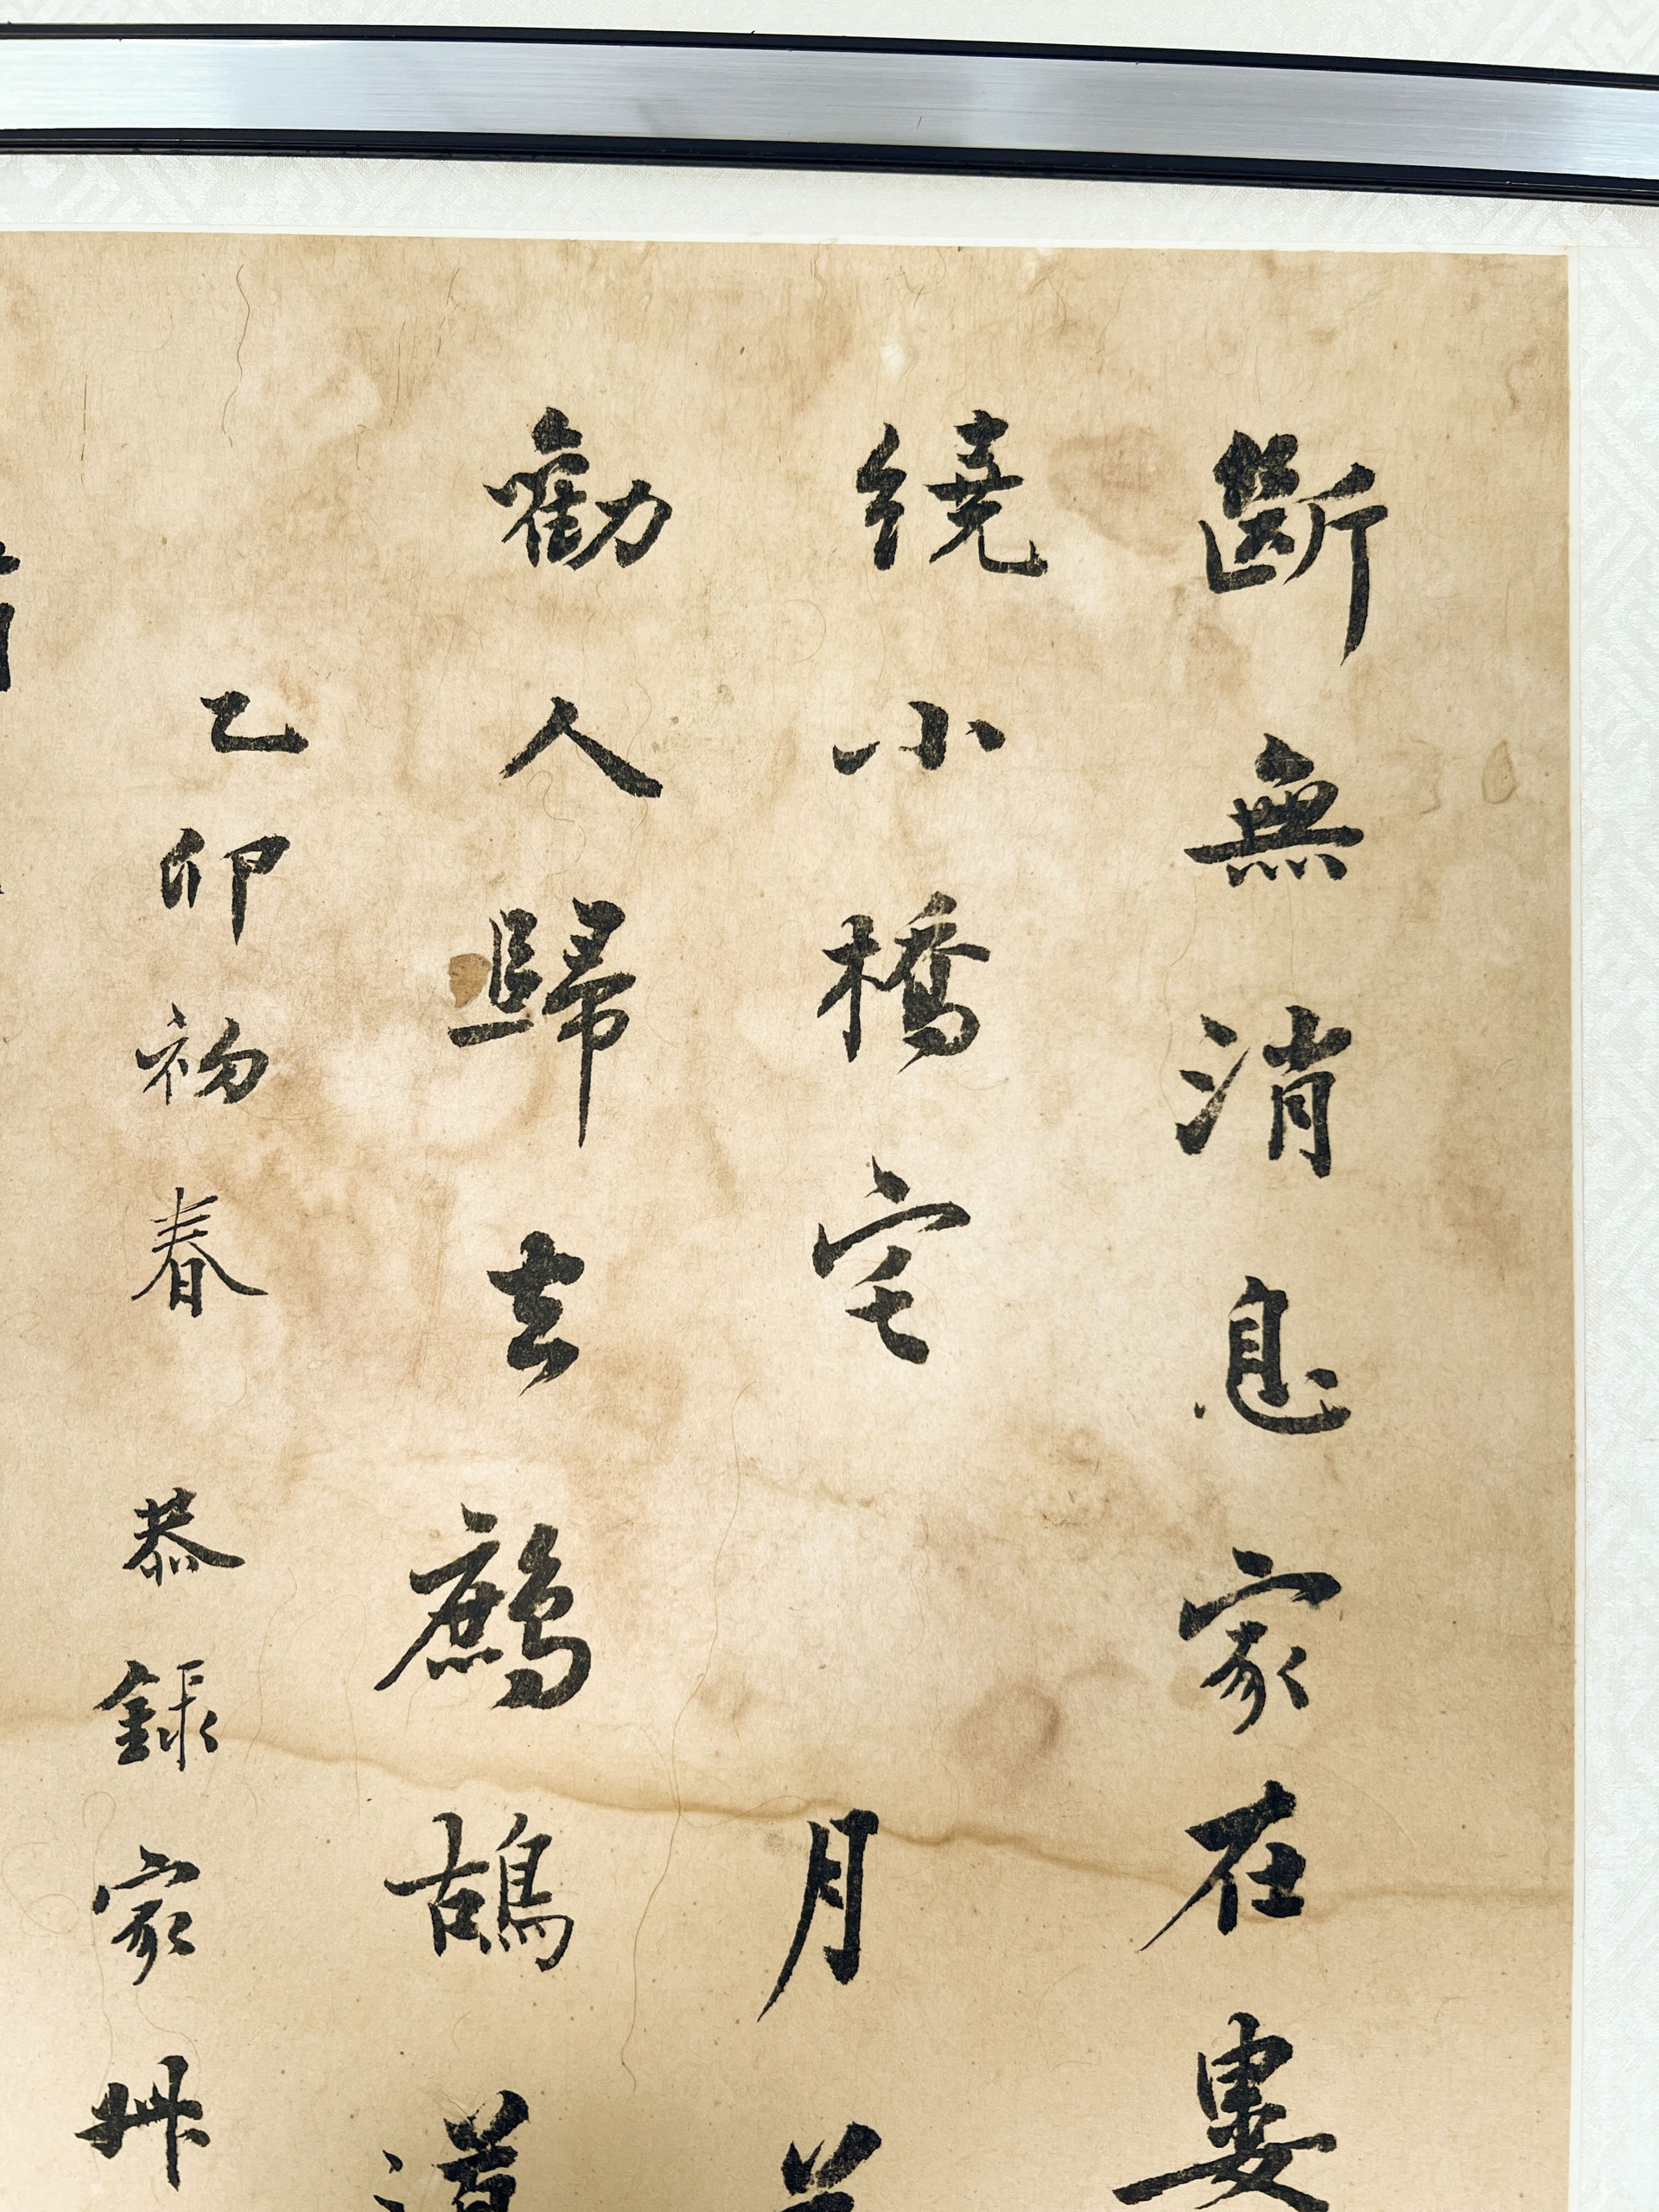 斷無消息家在婁
繞小橋宅 月
勸人歸去鷓鴣
乙卯初春 恭錄家